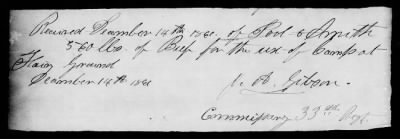 Received December 14th 1861. of Pool & Smith
560 lbs. of Beef for the use of Camp at
Fair Ground
December 14th 1861
J. A. Gibson.
Commissary 33rd Regt.